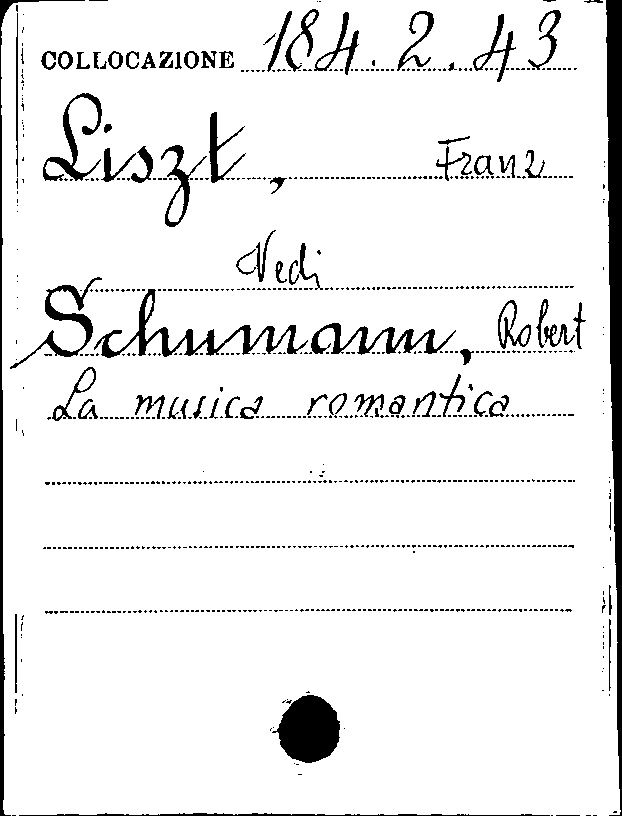 COLLOCAZIONE 184.2.43
Liszt, Franz
Vedi
Schumann, Robert
La musica romantica